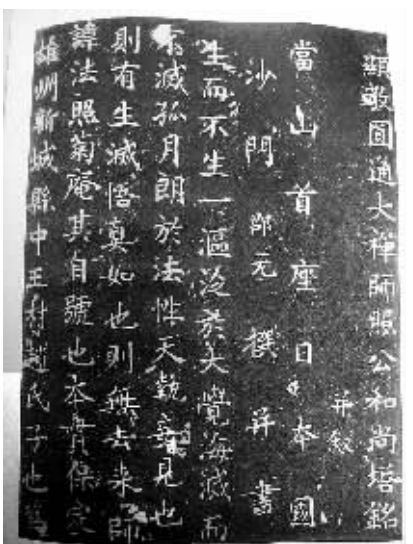 顯教圓通大禪師照公和尚塔銘
并叙
當山首座日本國
沙門邵元撰并書
生而不生一漚泛於大覺海滅而
不滅孤月朗於法性天執妄見也
則有生滅悟真如也則無去來師
諱法照菊庵其自號也本貫保定
雄州新城縣中王村趙氏子也